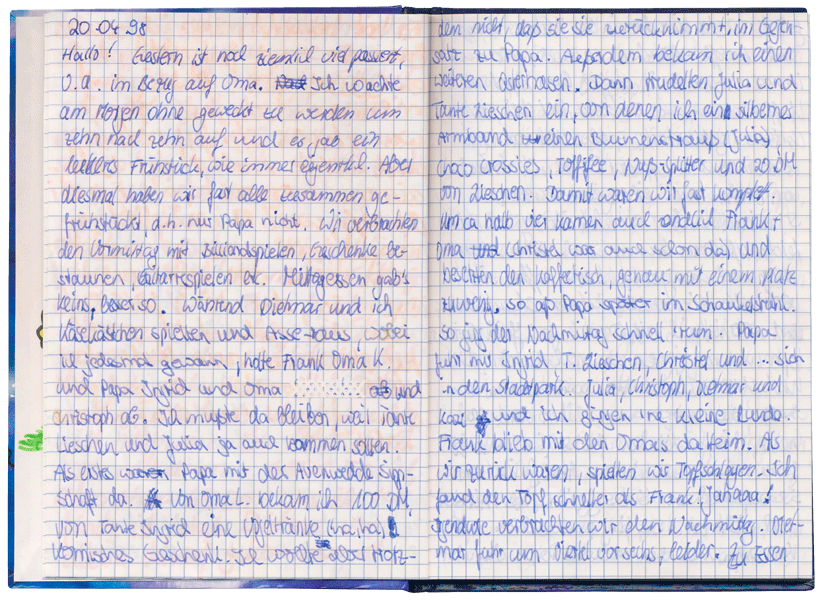 20.04.98
Hallo! Gestern ist noch ziemlich viel passiert,
V.a. im Bezug auf Oma. Ich wachte
am Morgen ohne geweckt zu werden um
zehn nach zehn auf und es gab ein
leckeres Frühstück, wie immer eigentlich. Aber
diesmal haben wir fast alle zusammen ge-
frühstückt, d.h. nur Papa nicht. Wir verbrachten
den Vormittag mit Billiardspielen, Geschenke be-
staunen, Guitarrespielen etc. Mittagessen gab's
keins, besser so. Während Dietmar und ich
Käsekästchen spielten und Asse-raus, wobei
ich jedesmal gewann, holte Frank Oma K.
und Papa Ingrid und Oma und
Christoph ab. Ich mußte da bleiben, weil Tante
Lieschen und Julia ja auch kommen sollten.
Als erstes Papa mit der Avenwedde Sipp-
schaft da. Von Oma L. bekam ich 100 DM,
von Tante Ingrid eine Vogeltränke (ha, ha),
komisches Geschenk. Ich wollte aber trotz-
dem nicht, daß sie sie zurücknimmt, im Gegen-
satz zu Papa. Außerdem bekam ich einen
weiteren Osterhasen. Dann trudelten Julia und
Tante Lieschen ein, von denen ich ein silbernes
Armband einen Blumenstrauß (Julia),
Choco Crossies, Toffifee, Nuß-Splitter und 20 DM
von Lieschen. Damit waren wir fast komplett.
Um ca halb vier kamen auch endlich Frank +
Oma (Christel war auch schon da) und
besetzten den Kaffeetisch, genau mit einem Platz
zuwenig, so aß Papa im Schaukelstuhl.
So ging der Nachmittag schnell 'rum. Papa
fuhr mit Ingrid, T. Lieschen, Christel und ... sich
in den Stadtpark. Julia, Christoph, Dietmar und
und ich gingen 'ne kleine Runde.
Frank blieb mit den Omas daheim. Als
wir zurück waren, spielten wir Topfschlagen. Ich
fand den Topf schneller als Frank! Jahaaa!
Irgendwie verbrachten wir den Nachmittag. Diet-
mar fuhr um Viertel vor sechs, leider. Zu Essen